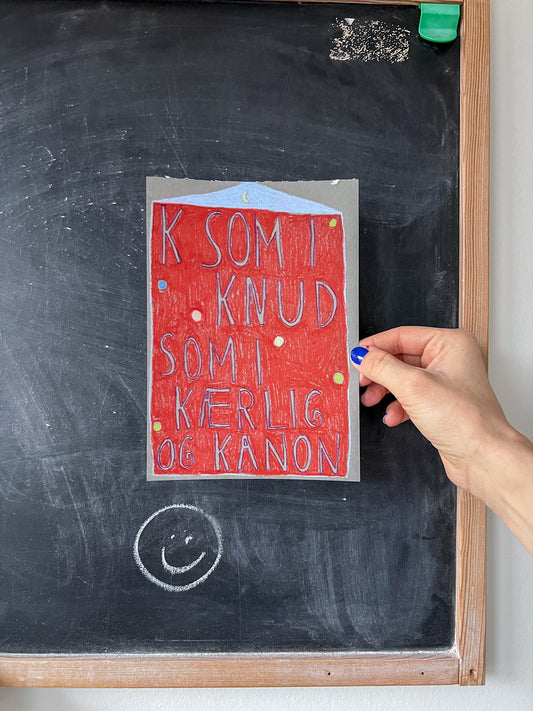 K SOM I
KNUD
SOM I
KÆRLIG
OG KANON